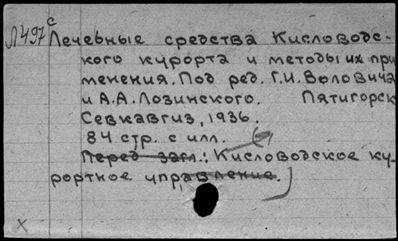 Л497с Лечебные средства Кисловодс-
кого курорта и методы их при
менения. Под ред. Г.И. Воловича
и А.А. Лозинского. Пятигорск
Севкавгиз, 1936.
84 стр. с илл.
Перед загл.: Кисловодское ку-
рортное управление.
х